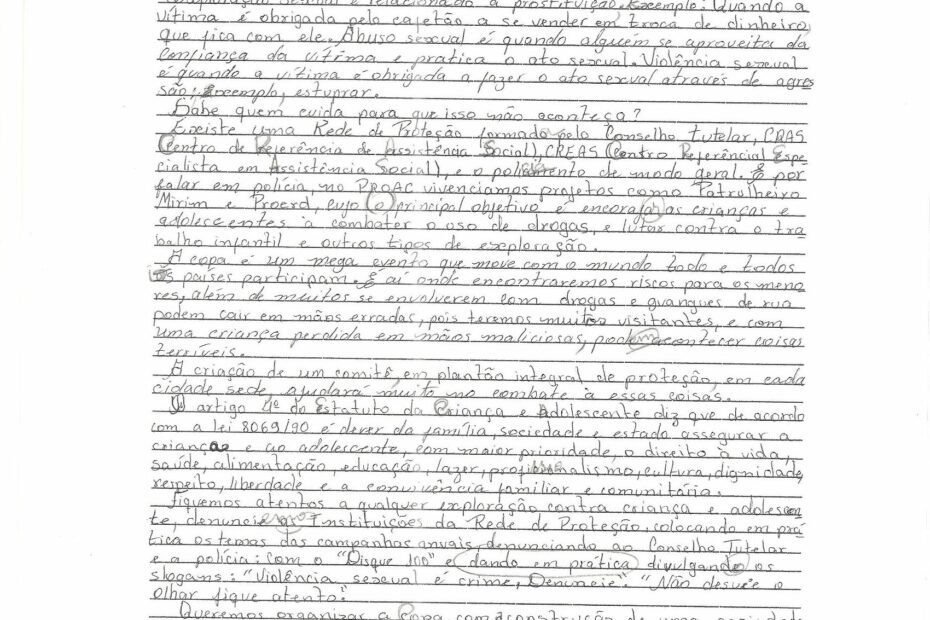 exploração sexual é relacionado à prostituição. Exemplo: Quando a
vítima é obrigada pelo cafetão a se vender em troca de dinheiro,
que fica com ele. Abuso sexual é quando alguém se aproveita da
confiança da vítima e pratica o ato sexual. Violência sexual
é quando a vítima é obrigada a fazer o ato sexual através de agres
são; exemplo, estuprar.
Sabe quem cuida para que isso não aconteça?
Existe uma Rede de Proteção formado pelo Conselho tutelar, CRAS
Centro de Referência de Assistência Social), CREAS (Centro Referêncial Espe
cialista em Assistência Social), e o policiamento de modo geral. E por
falar em polícia, no PROAC vivenciamos projetos como Patrulheiro
Mirim e Proerd, cujo o principal objetivo é encorajar as crianças e
adolescentes à combater o uso de drogas, e lutar contra o tra
balho infantil e outros tipos de exploração.
A copa é um mega evento que move com o mundo todo e todos
os países participam. E aí onde encontraremos riscos para os meno
res, além de muitos se envolverem com drogas e guangues de rua
podem cair em mãos erradas, pois teremos muitos visitantes, e com
uma criança perdida em mãos maliciosas, podem acontecer coisas
terríveis.
A criação de um comitê, em plantão integral de proteção, em cada
cidade sede, ajudará muito no combate à essas coisas.
O artigo 4º do Estatuto da Criança e Adolescente diz que de acordo
com a lei 8069/90 é dever da família, sociedade e estado assegurar a
criança e ao adolescente, com maior prioridade, o direito à vida,
saúde, alimentação, educação, lazer, profissionalismo, cultura, dignidade,
respeito, liberdade e a convivência familiar e comunitária.
Fiquemos atentos a qualquer exploração contra criança e adolescen
te, denuncie as Instituições da Rede de Proteção, colocando em prá
tica os temas das campanhas anuais, denunciando ao Conselho Tutelar
e a polícia: com o "Disque 100" e dando em prática divulgando os
slogans: "Violência sexual é crime, Denuncie". "Não desvie o
olhar fique atento."
Queremos organizar a Copa com a construção de uma sociedade